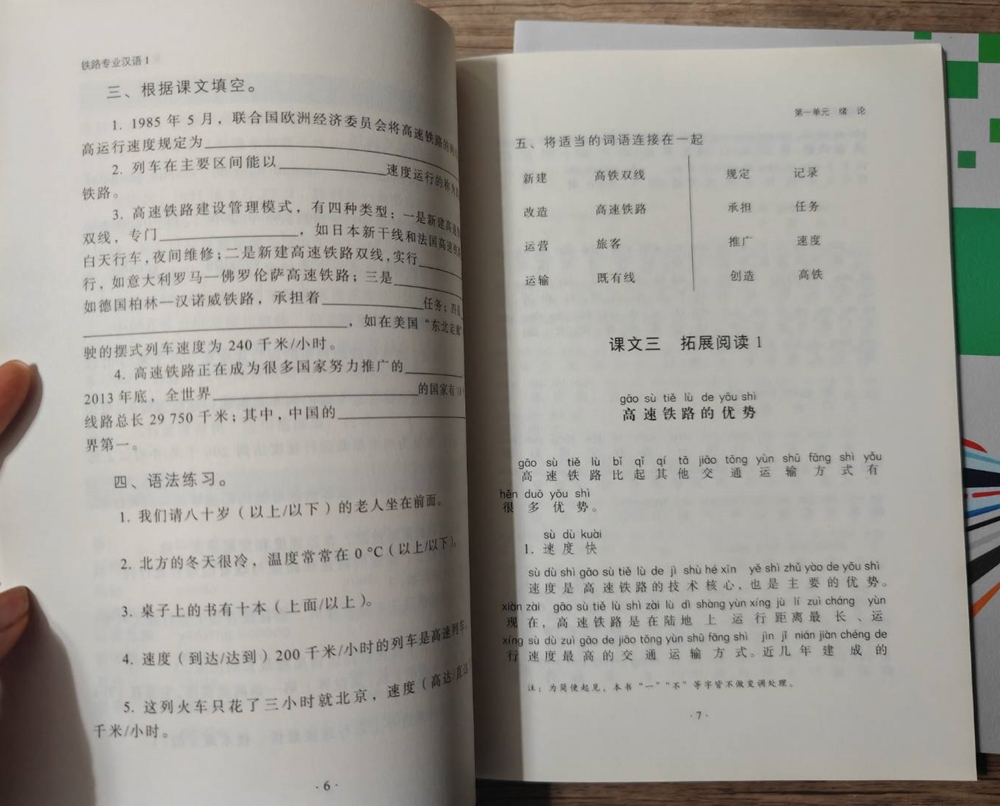 铁路专业汉语 1
三、根据课文填空。
1. 1985 年 5 月，联合国欧洲经济委员会将高速铁路的
高运行速度规定为
2. 列车在主要区间能以____________速度运行的
铁路。
3. 高速铁路建设管理模式，有四种类型；一是新建高速
双线，专门______________，如日本新干线和法国高速
白天行车，夜间维修；二是新建高速铁路双线，实行
行，如意大利罗马—佛罗伦萨高速铁路；三是
如德国柏林—汉诺威铁路，承担着____________任务；
______________，如在美国“东北走廊
驶的摆式列车速度为 240 千米/小时。
4. 高速铁路正在成为很多国家努力推广的
2013 年底，全世界______________的国家有
线路总长 29 750 千米；其中，中国的
界第一。
四、语法练习。
1. 我们请八十岁（以上/以下）的老人坐在前面。
2. 北方的冬天很冷，温度常常在 0 °C（以上/以下）。
3. 桌子上的书有十本（上面/以上）。
4. 速度（到达/达到）200 千米/小时的列车是高速列车。
5. 这列火车只花了三小时就北京，速度（高达/
千米/小时。
· 6 ·
第一单元 绪 论
五、将适当的词语连接在一起
新建 高铁双线 规定 记录
改造 高速铁路 承担 任务
运营 旅客 推广 速度
运输 既有线 创造 高铁
课文三 拓展阅读 1
gāo sù tiě lù de yōu shì
高速铁路的优势
gāo sù tiě lù bǐ qǐ qí tā jiāo tōng yùn shū fāng shì yǒu
高速铁路比起其他交通运输方式有
hěn duō yōu shì
很多优势。
sù dù kuài
1. 速度快
sù dù shì gāo sù tiě lù de jì shù hé xīn yě shì zhǔ yào de yōu shì
速度是高速铁路的技术核心，也是主要的优势。
xiàn zài gāo sù tiě lù shì zài lù dì shàng yùn xíng jù lí zuì cháng yùn
现在，高速铁路是在陆地上运行距离最长、运
xíng sù dù zuì gāo de jiāo tōng yùn shū fāng shì jìn jǐ nián jiàn chéng de
行速度最高的交通运输方式。近几年建成的
注：为简便起见，本书“一”“不”等字皆不做变调处理。
· 7 ·